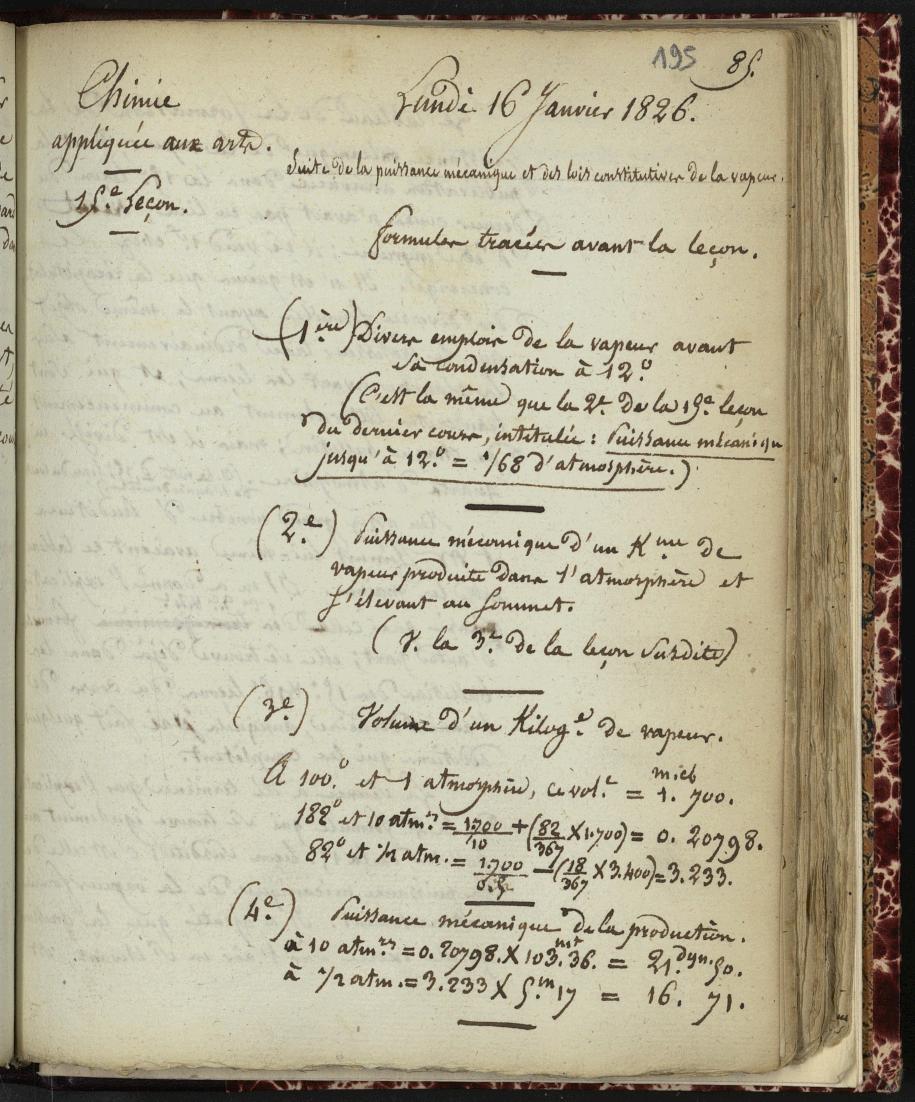 195
85.
Chimie
appliquée aux arts.
15.e Leçon.
Lundi 16 Janvier 1826.
Suite de la puissance mécanique et des lois constitutives de la vapeur.
Formules tracées avant la leçon.
(1ère) Divers emplois de la vapeur avant
sa condensation à 12.°
(C'est la même que la 2e. de la 19.e leçon
du dernier cours, intitulée : Puissance mécanique
jusqu'à 12.° = 1/68 d'atmosphère.)
(2.e) Puissance mécanique d'un K.me de
vapeur produite dans l'atmosphère et
s'élevant au sommet.
(V. la 3.e de la leçon susdite)
(3e.) Volume d'un Kilog.e de vapeur.
A 100.° et 1 atmosphère, ce vol.e = 1. m.cb 700.
182° et 10 atm.res = 1.700/10 + (82/367 X 1.700) = 0. 20798.
82° et 1/2 atm. = 1.700/0.5 - (18/367 X 3.400) = 3.233.
(4e.) Puissance mécanique de la production.
à 10 atm.res = 0.20798. X 103.mt 36. = 21.Dyn. 50.
à 1/2 atm. = 3.233 X 5.m 17 = 16. 71.